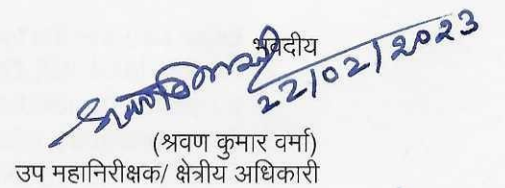 भवदीय
22/02/2023
(श्रवण कुमार वर्मा)
उप महानिरीक्षक/ क्षेत्रीय अधिकारी